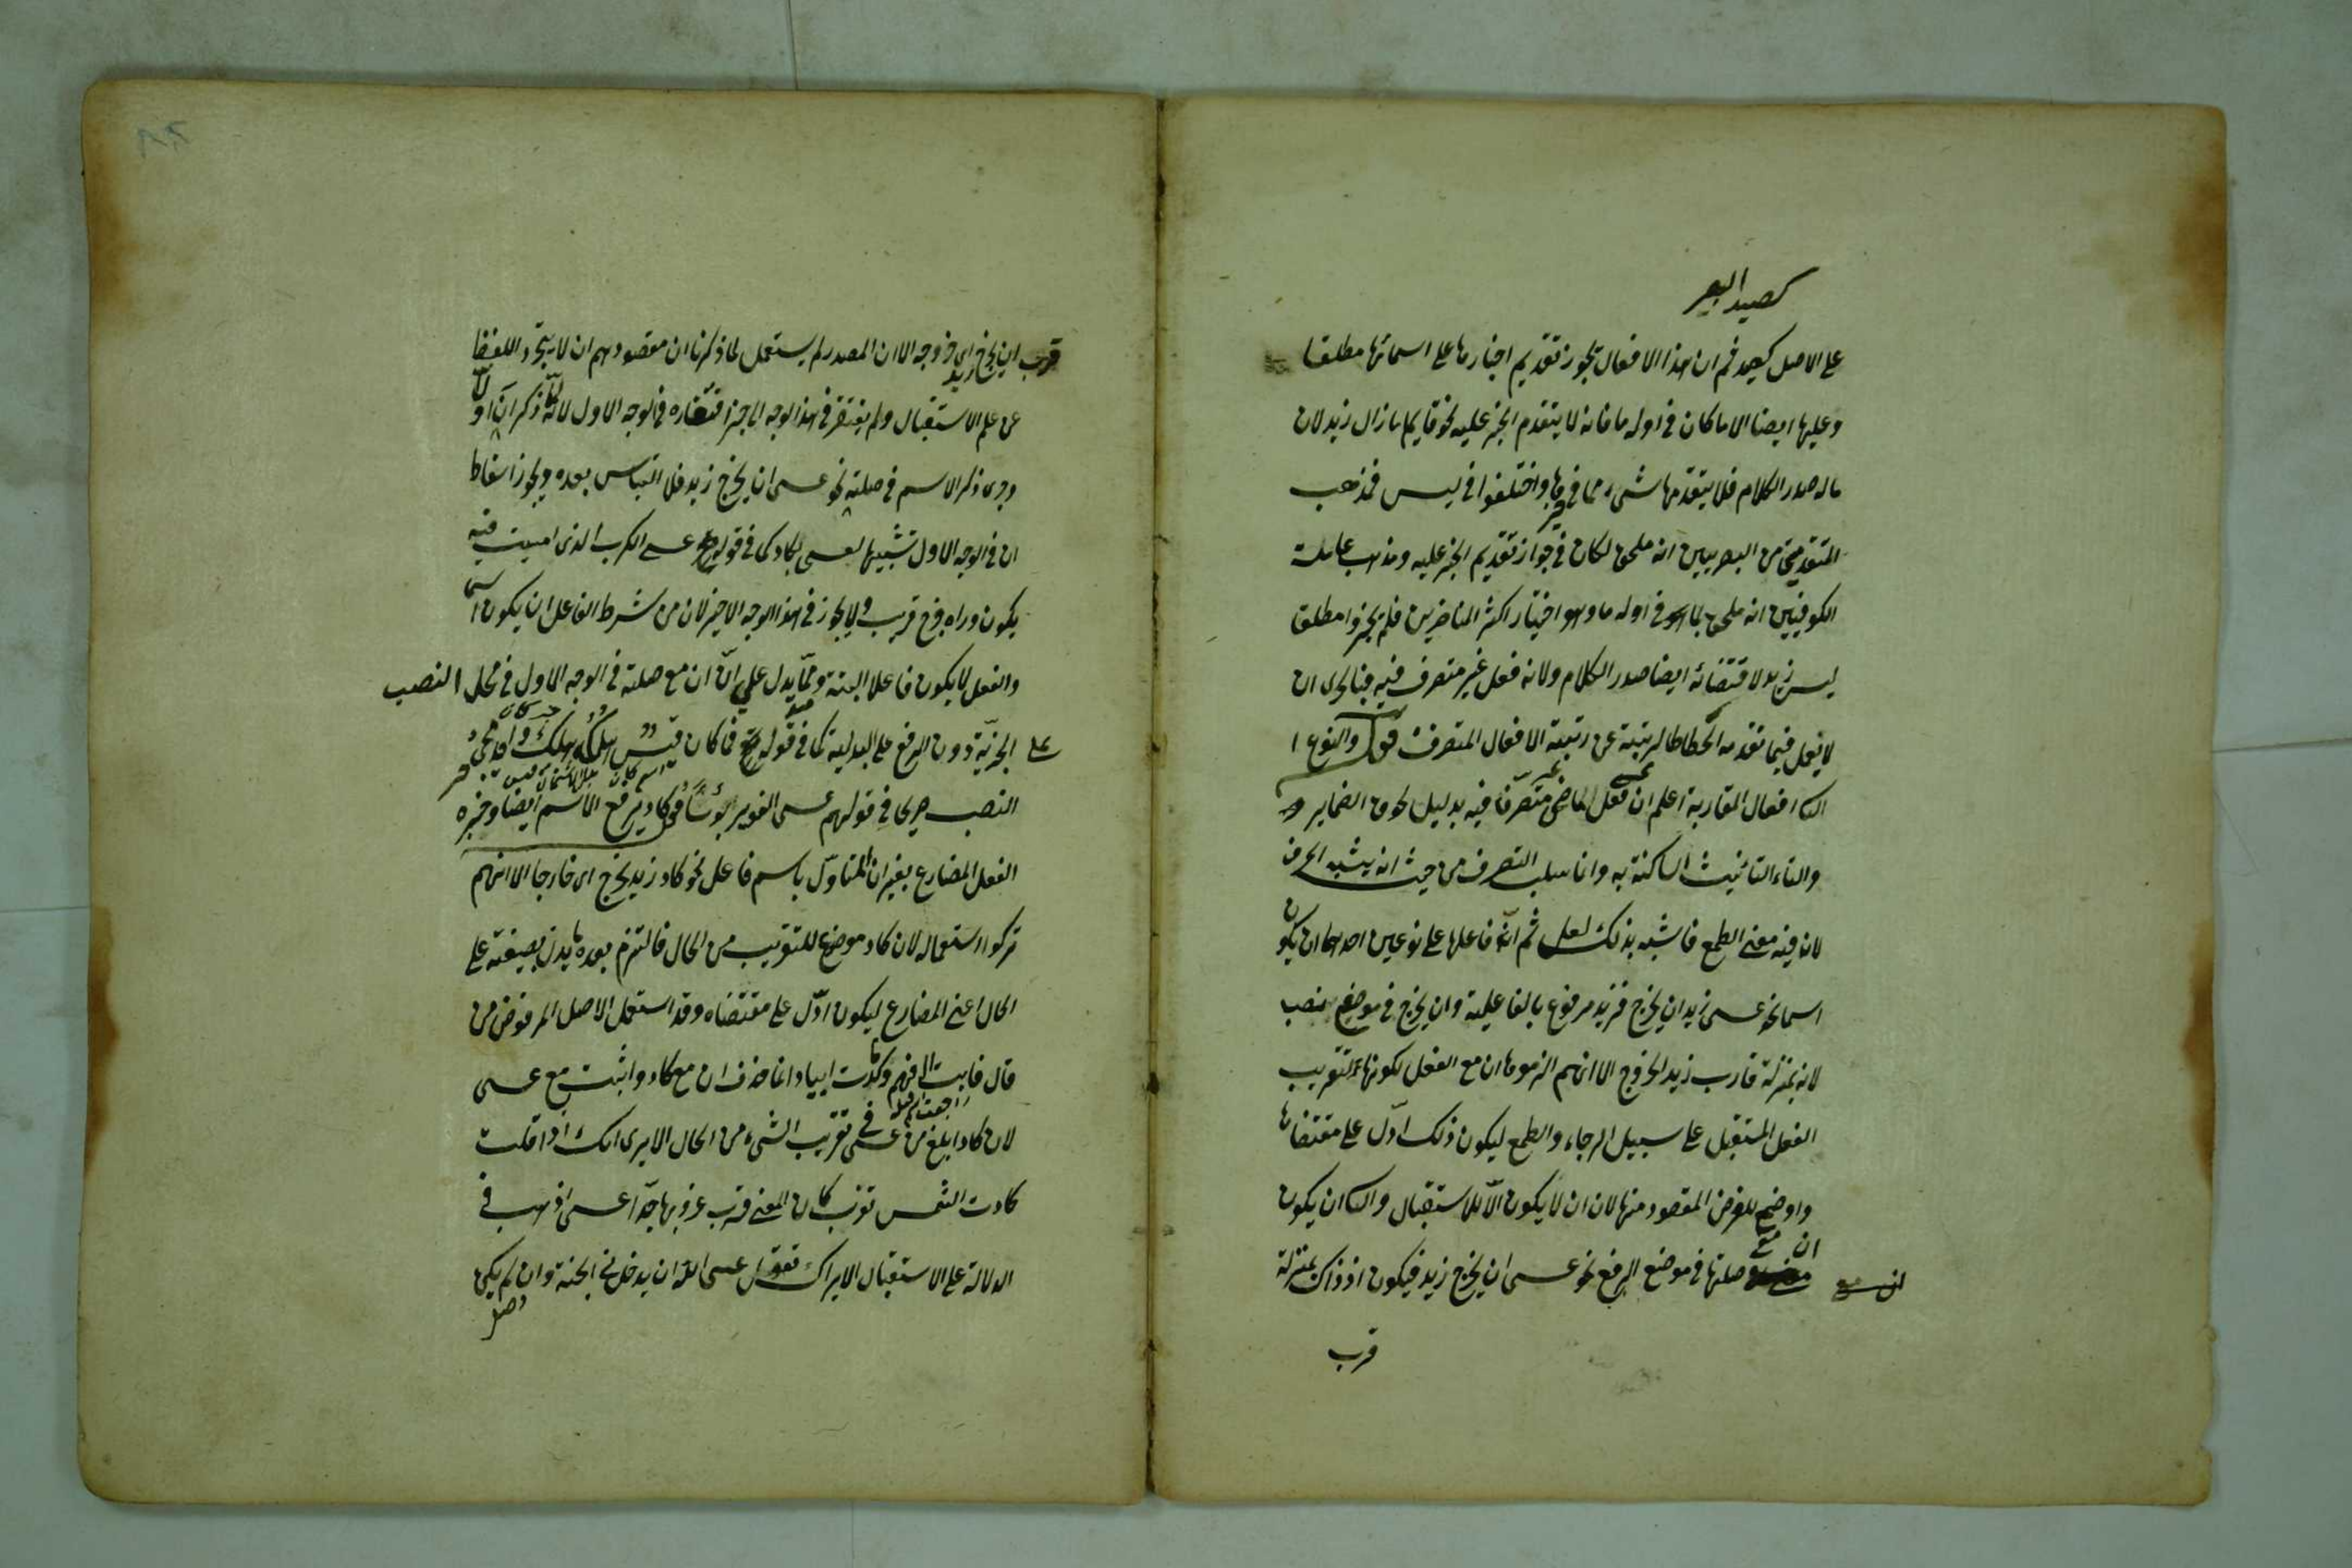 كصيد البعر
على الاصل كصيد ثم ان هذا الافعال يجوز تقديم اخبارها على اسمائها مطلقا
وعليها ايضا الا ما كان فى اوله ما فانه لا يتقدم الخبر عليه نحو قايما ما زال زيد لان
ما له صدر الكلام فلا يتقدمها شىء مما فى واختلفوا فى ليس فمذهب
المتقدمين من البصريين انه ملحق بكان فى جواز تقديم الخبر عليه ومذهب عامة
الكوفيين انه ملحق بما فى اوله ما وهو اختيار اكثر المتاخرين فلم يجيزوا مطلقا
ليس زيد لاقتضائه ايضا صدر الكلام ولانه فعل غير متصرف فيه فبالحرى ان
لا يعمل فيما تقدمه انحطاطا لرتبته عن رتبة الافعال المتصرفة قوله والنوع ا
افعال المقاربة اعلم ان عسى فعل الماضى غير متصرف فيه بدليل لحوق الضماير
والتاء التانيث الساكنة به وانما سلب التصرف من حيث انه يشبه الحرف
لان فيه معنى الطمع فاشبه بذلك لعل ثم انّ فاعلها على نوعين احدهما ان يكون
اسما نحو عسى زيد ان يخرج فزيد مرفوع بالفاعلية وان يخرج فى موضع نصب
لانه بمنزلة قارب زيد الخروج الا انهم الزموها ان مع الفعل لكونها لتقريب
الفعل المستقبل على سبيل الرجاء والطمع ليكون ذلك ادلّ على مقتضاها
واوضح للغرض المقصود منها لان ان لا يكون الّا للاستقبال ان يكون
ان مع
صلتها فى موضع الرفع نحو عسى ان يخرج زيد فيكون اذ ذاك بمنزلة
ان مع
قرب
قرب ان يخرج زيد اى خروجه الا ان المصدر لم يستعمل لما ذكرنا ان مقصودهم ان لا يتجرد اللفظ
عن علم الاستقبال ولم يفتقر فى هذا الوجه الى خبر افتقاره فى الوجه الاول لانه لمّا ذكر ان اولا
وجرى ذكر الاسم فى صلته نحو عسى ان يخرج زيد فلا التباس بعده ويجوز اسقاط
ان فى الوجه الاول تشبيها لعسى بكاد كما فى قوله عسى الكرب الذى امسيت فيه
يكون وراءه فرج قريب ولا يجوز فى هذا الوجه الاخير لان من شرط الفاعل ان يكون اسما
والفعل لا يكون فاعلا البتة وممّا يدل على انّ ان مع صلته فى الوجه الاول فى محل النصب
على الخبريّة دون الرفع على البدلية كما فى قوله فما كان قيس هلكه هلك واحد مجئ
اسم كان بدل الاشتمال من قيس
النصب صريحا فى قولهم عسى الغوير ابؤسا قوله كاد يرفع الاسم ايضا وخبره
الفعل المضارع بغير ان المتاوّل باسم فاعل نحو كاد زيد يخرج اى خارجا الا انهم
تركوا استعماله لان كاد موضع للتقريب من الحال فالتزم بعده ما يدل بصيغته على
الحال اعنى المضارع ليكون ادلّ على مقتضاه وقد استعمل الاصل المرفوض من
قال فابت الى فهم وما كدت ايبا وانما حذف ان مع كاد واثبت مع عسى
لان كاد ابلغ من عسى فى تقريب الشىء من الحال الا يرى انك اذا قلت
كادت الشمس تغرب كان المعنى قرب غروبها جدّا عسى اذهب فى
الدلالة على الاستقبال الا يراك تقول عسى الله ان يدخلنى الجنة وان لم يكن